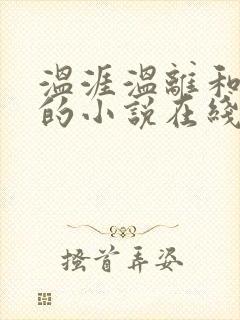 温涯温離和
的小說在綫
搔首弄姿